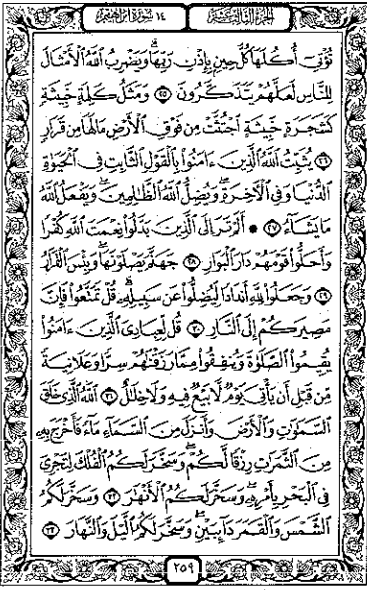 الجزء الثالث عشر ١٤ سورة ابراهيم
تُؤْتِىٓ أُكُلَهَا كُلَّ حِينٍۭ بِإِذْنِ رَبِّهَا ۗ وَيَضْرِبُ ٱللَّهُ ٱلْأَمْثَالَ
لِلنَّاسِ لَعَلَّهُمْ يَتَذَكَّرُونَ ٢٥ وَمَثَلُ كَلِمَةٍ خَبِيثَةٍ
كَشَجَرَةٍ خَبِيثَةٍ ٱجْتُثَّتْ مِن فَوْقِ ٱلْأَرْضِ مَا لَهَا مِن قَرَارٍ
٢٦ يُثَبِّتُ ٱللَّهُ ٱلَّذِينَ ءَامَنُوا۟ بِٱلْقَوْلِ ٱلثَّابِتِ فِى ٱلْحَيَوٰةِ
ٱلدُّنْيَا وَفِى ٱلْأَخِرَةِ ۖ وَيُضِلُّ ٱللَّهُ ٱلظَّٰلِمِينَ ۚ وَيَفْعَلُ ٱللَّهُ
مَا يَشَآءُ ٢٧ ۞ أَلَمْ تَرَ إِلَى ٱلَّذِينَ بَدَّلُوا۟ نِعْمَتَ ٱللَّهِ كُفْرًا
وَأَحَلُّوا۟ قَوْمَهُمْ دَارَ ٱلْبَوَارِ ٢٨ جَهَنَّمَ يَصْلَوْنَهَا ۖ وَبِئْسَ ٱلْقَرَارُ
٢٩ وَجَعَلُوا۟ لِلَّهِ أَندَادًا لِّيُضِلُّوا۟ عَن سَبِيلِهِۦ ۗ قُلْ تَمَتَّعُوا۟ فَإِنَّ
مَصِيرَكُمْ إِلَى ٱلنَّارِ ٣٠ قُل لِّعِبَادِىَ ٱلَّذِينَ ءَامَنُوا۟
يُقِيمُوا۟ ٱلصَّلَوٰةَ وَيُنفِقُوا۟ مِمَّا رَزَقْنَٰهُمْ سِرًّا وَعَلَانِيَةً
مِّن قَبْلِ أَن يَأْتِىَ يَوْمٌ لَّا بَيْعٌ فِيهِ وَلَا خِلَٰلٌ ٣١ ٱللَّهُ ٱلَّذِى خَلَقَ
ٱلسَّمَٰوَٰتِ وَٱلْأَرْضَ وَأَنزَلَ مِنَ ٱلسَّمَآءِ مَآءً فَأَخْرَجَ بِهِۦ
مِنَ ٱلثَّمَرَٰتِ رِزْقًا لَّكُمْ ۖ وَسَخَّرَ لَكُمُ ٱلْفُلْكَ لِتَجْرِىَ
فِى ٱلْبَحْرِ بِأَمْرِهِۦ ۖ وَسَخَّرَ لَكُمُ ٱلْأَنْهَٰرَ ٣٢ وَسَخَّرَ لَكُمُ
ٱلشَّمْسَ وَٱلْقَمَرَ دَآئِبَيْنِ ۖ وَسَخَّرَ لَكُمُ ٱلَّيْلَ وَٱلنَّهَارَ ٣٣
٢٥٩